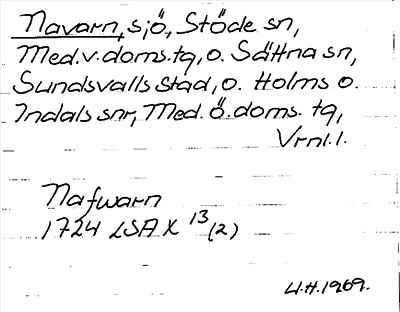 Navarn, sjö, Stöde sn,
Med.v.doms.tg, o. Sättna sn,
Sundsvalls stad, o. Holms o.
Indals snr, Med. ö. doms. tg,
Vrnl.l.
Nafwarn
1724 LSA X 13/(2)
U.H.1969.